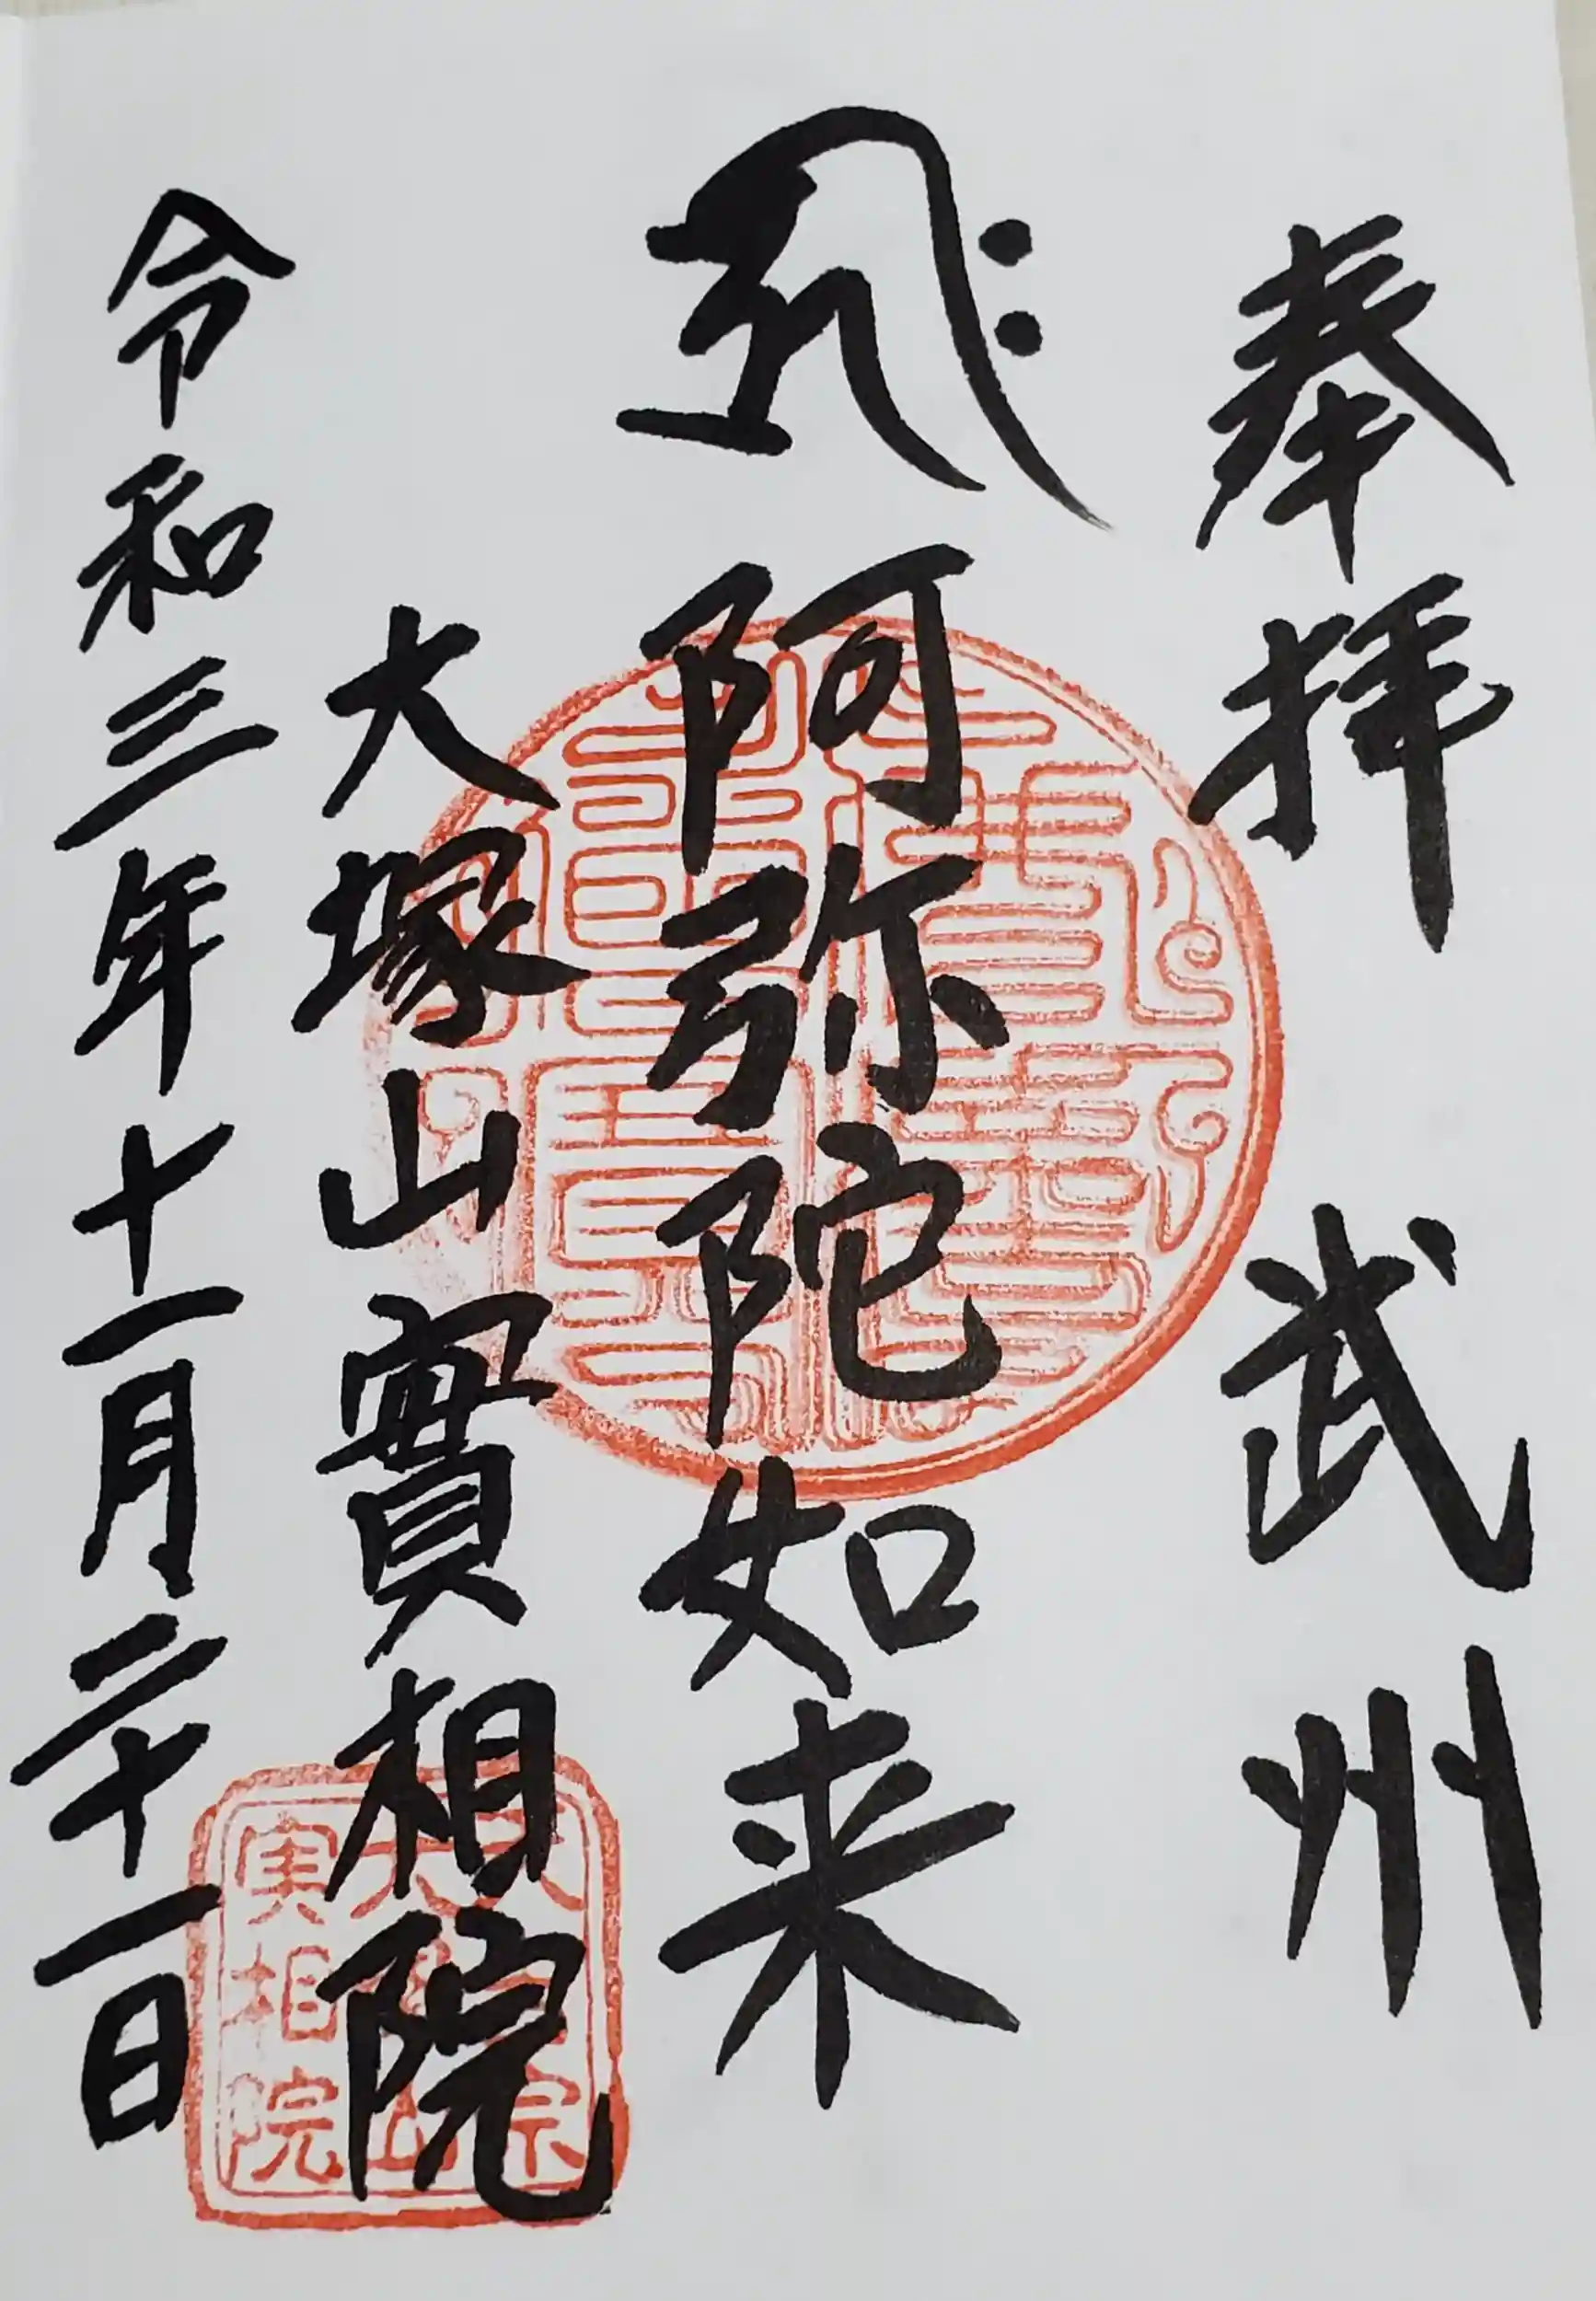 奉拝　武州
𑖮𑖿𑖨𑖱𑖾
阿弥陀如来
大塚山實相院
令和三年十一月二十一日
天台宗
大塚山
実相院